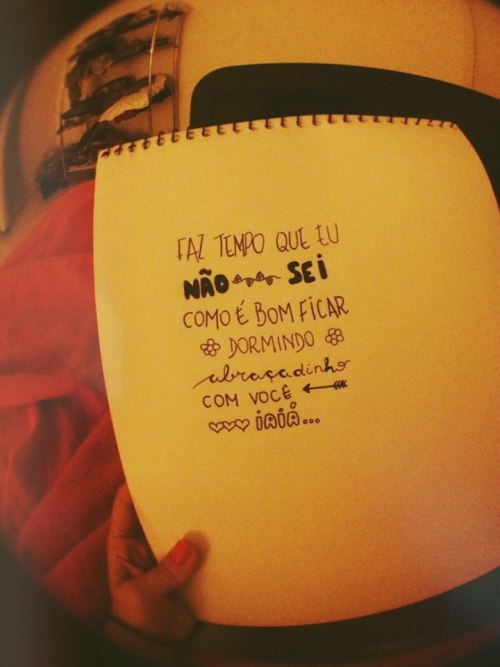 FAZ TEMPO QUE EU
NÃO SEI
COMO É BOM FICAR
DORMINDO
abraçadinho
COM VOCÊ
IAIÁ...